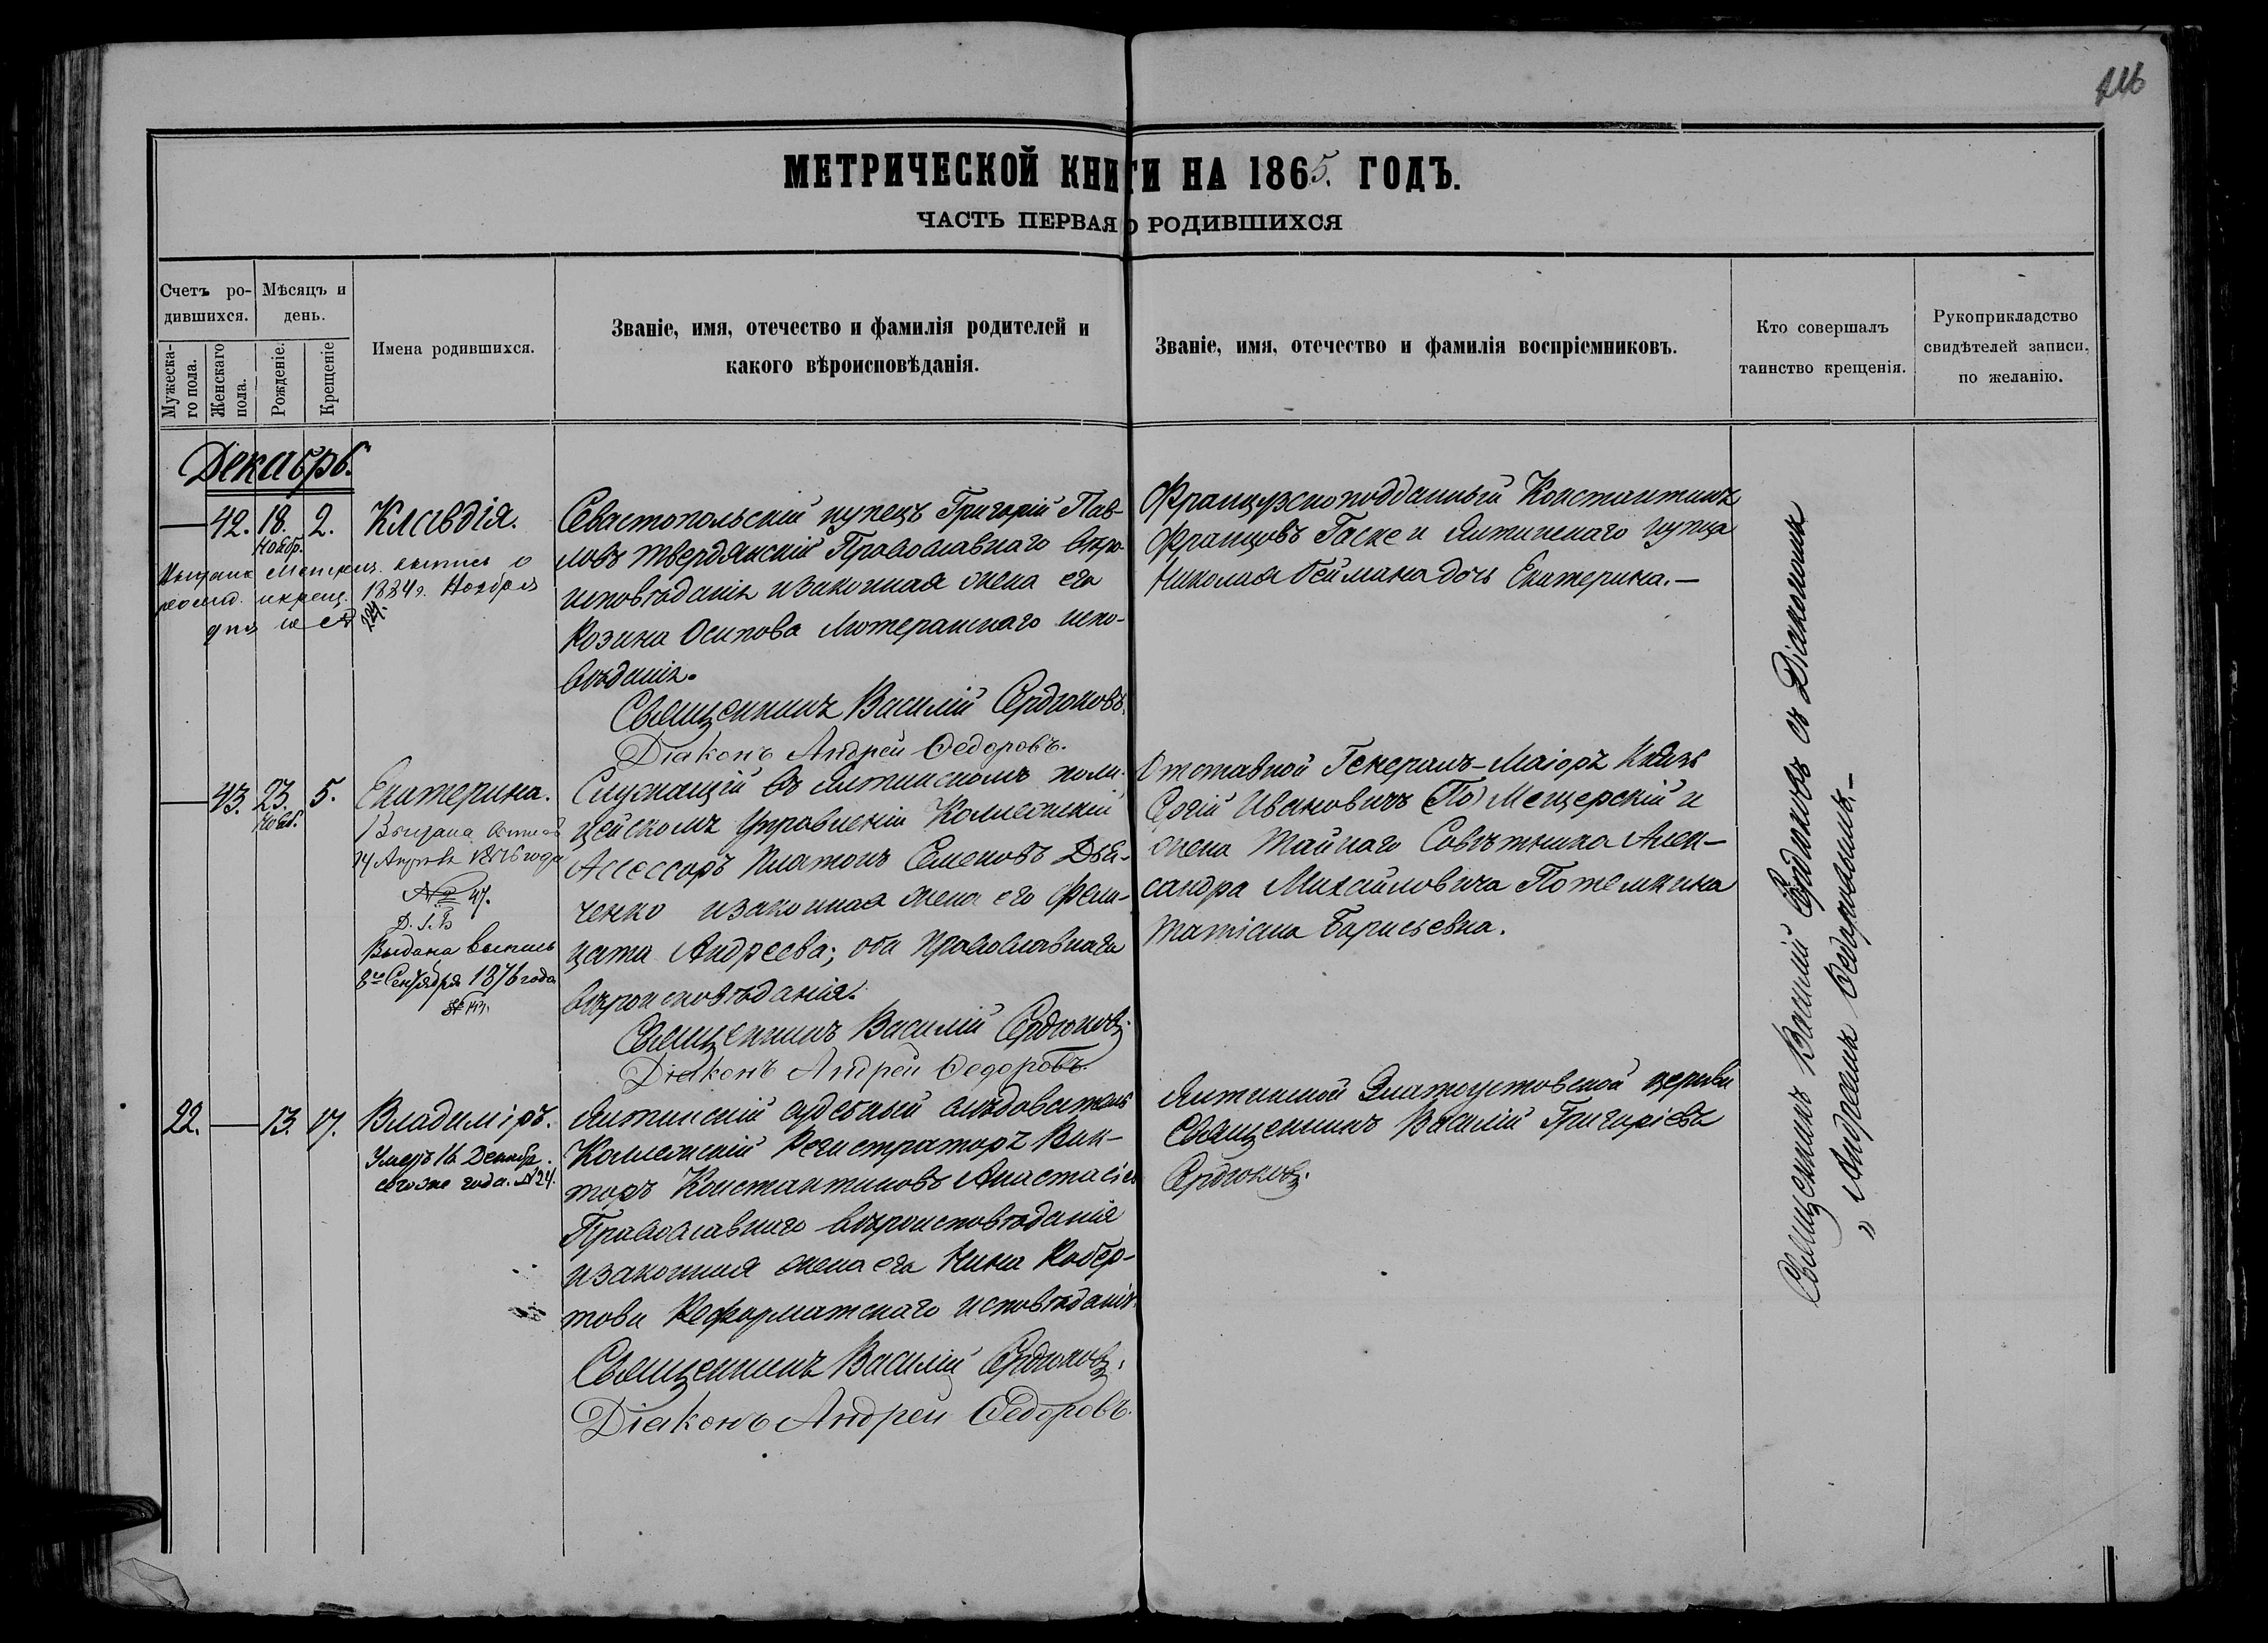 МЕТРИЧЕСКОЙ КНИГИ НА 1865. ГОДЪ.
ЧАСТЬ ПЕРВАЯ О РОДИВШИХСЯ
Счетъ ро-
дившихся.
Мужеска-
го пола.
Женскаго
пола.
Мѣсяцъ и
день.
Рожденіе.
Крещеніе
Имена родившихся.
Званіе, имя, отечество и фамилія родителей и
какого вѣроисповѣданія.
Званіе, имя, отечество и фамилія воспріемниковъ.
Кто совершалъ
таинство крещенія.
Рукоприкладство
свидѣтелей записи,
по желанію.
Декабрь.
— 42. 18. 2. Клавдія.
Ноябр.
выпись о
рожд. и крещ. 1884 г. Ноября
дня за №
Севастопольскій купецъ Григорій Пав-
ловъ Твердянскій Православнаго вѣро-
исповѣданія и законная жена его
Розина Осипова Лютеранскаго испо-
вѣданія.
Священникъ Василій Сердюковъ.
Діаконъ Андрей Федоровъ.
Французскоподданный Константинъ
Францовъ Гаске и Ялтинскаго купца
Николая Геймана дочь Екатерина.—
— 43. 23. 5. Екатерина.
Нояб.
Выдана выпись
24 Апрѣля 1876 года
№ 47.
Выдана выпись
8го Сентября 1876 года
Служащій въ Ялтинскомъ поли-
цейскомъ Управленіи Коллежскій
Ассессоръ Платонъ Семеновъ Дья-
ченко и законная жена его Фели-
цата Андреева; оба Православнаго
вѣроисповѣданія.
Священникъ Василій Сердюковъ.
Діаконъ Андрей Федоровъ.
Отставной Генералъ-Маіоръ Князь
Сергій Ивановичъ (По) Мещерскій и
жена Тайнаго Совѣтника Алек-
сандра Михайловича Потемкина
Татіана Борисьевна.
22. — 13. 17. Владиміръ.
Умеръ 16 Декабр.
сего же года. №24.
Ялтинскій судебный слѣдователь
Коллежскій Регистраторъ Вик-
торъ Константиновъ Анастасіев
Православнаго вѣроисповѣданія
и законная жена его Нина Робер-
това Реформатскаго исповѣданія.
Священникъ Василій Сердюковъ.
Діаконъ Андрей Федоровъ.
Ялтинской Златоустовской церкви
Священникъ Василій Григоріевъ
Сердюковъ.
Священникъ Василій Сердюковъ съ Діакономъ
„ Андреемъ Федоровымъ.—